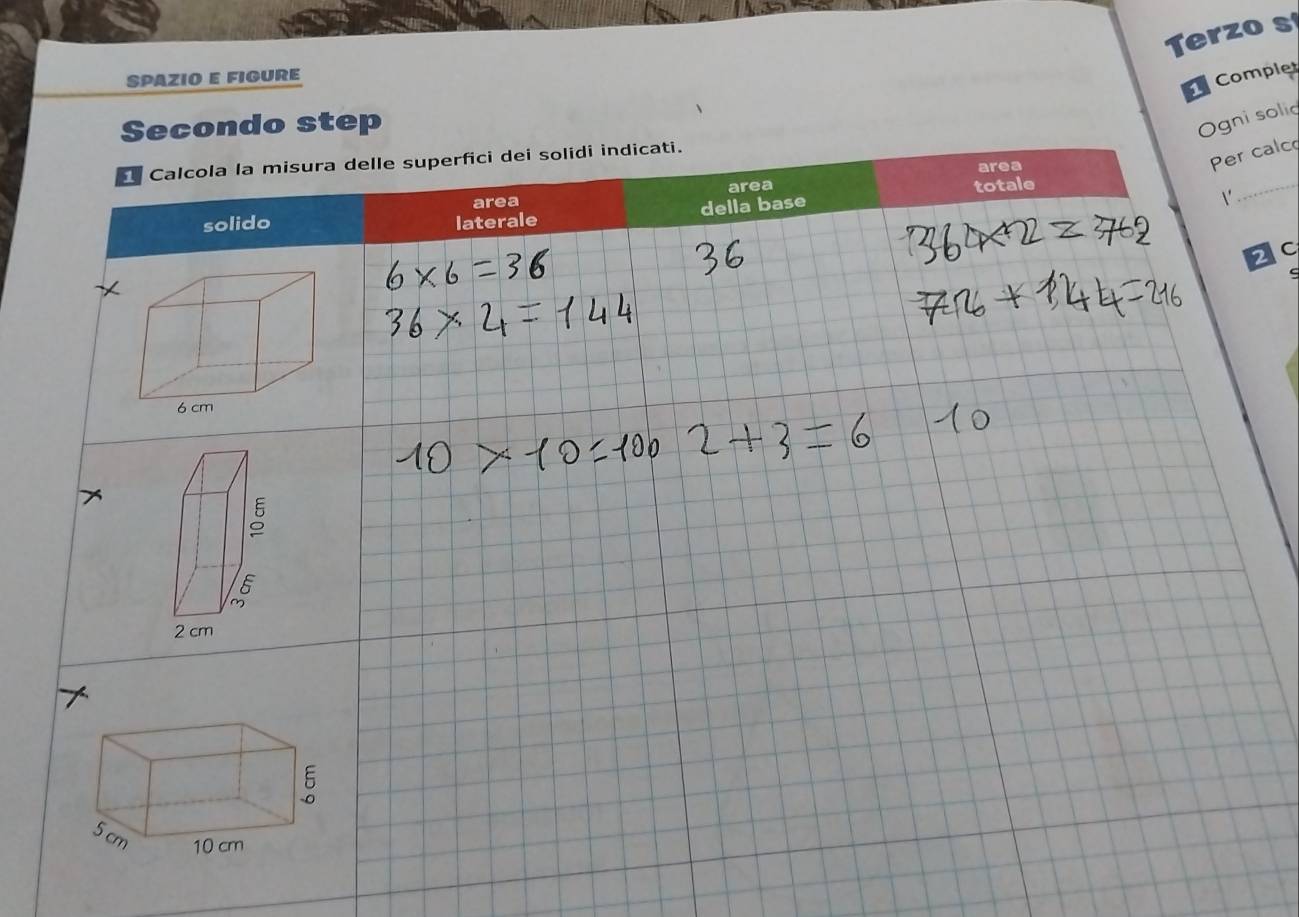 SPAZIO E FIGURE
Secondo step
1 Calcola la misura delle superfici dei solidi indicati.
solido
area laterale
area della base
area totale
6 cm
6 × 6 = 36
36 × 4 = 144
36
10 cm
3 cm
2 cm
10 × 10 = 100
2 + 3 = 6
10
6 cm
5 cm
10 cm
Terzo
1
Ogni
Per
l'
2